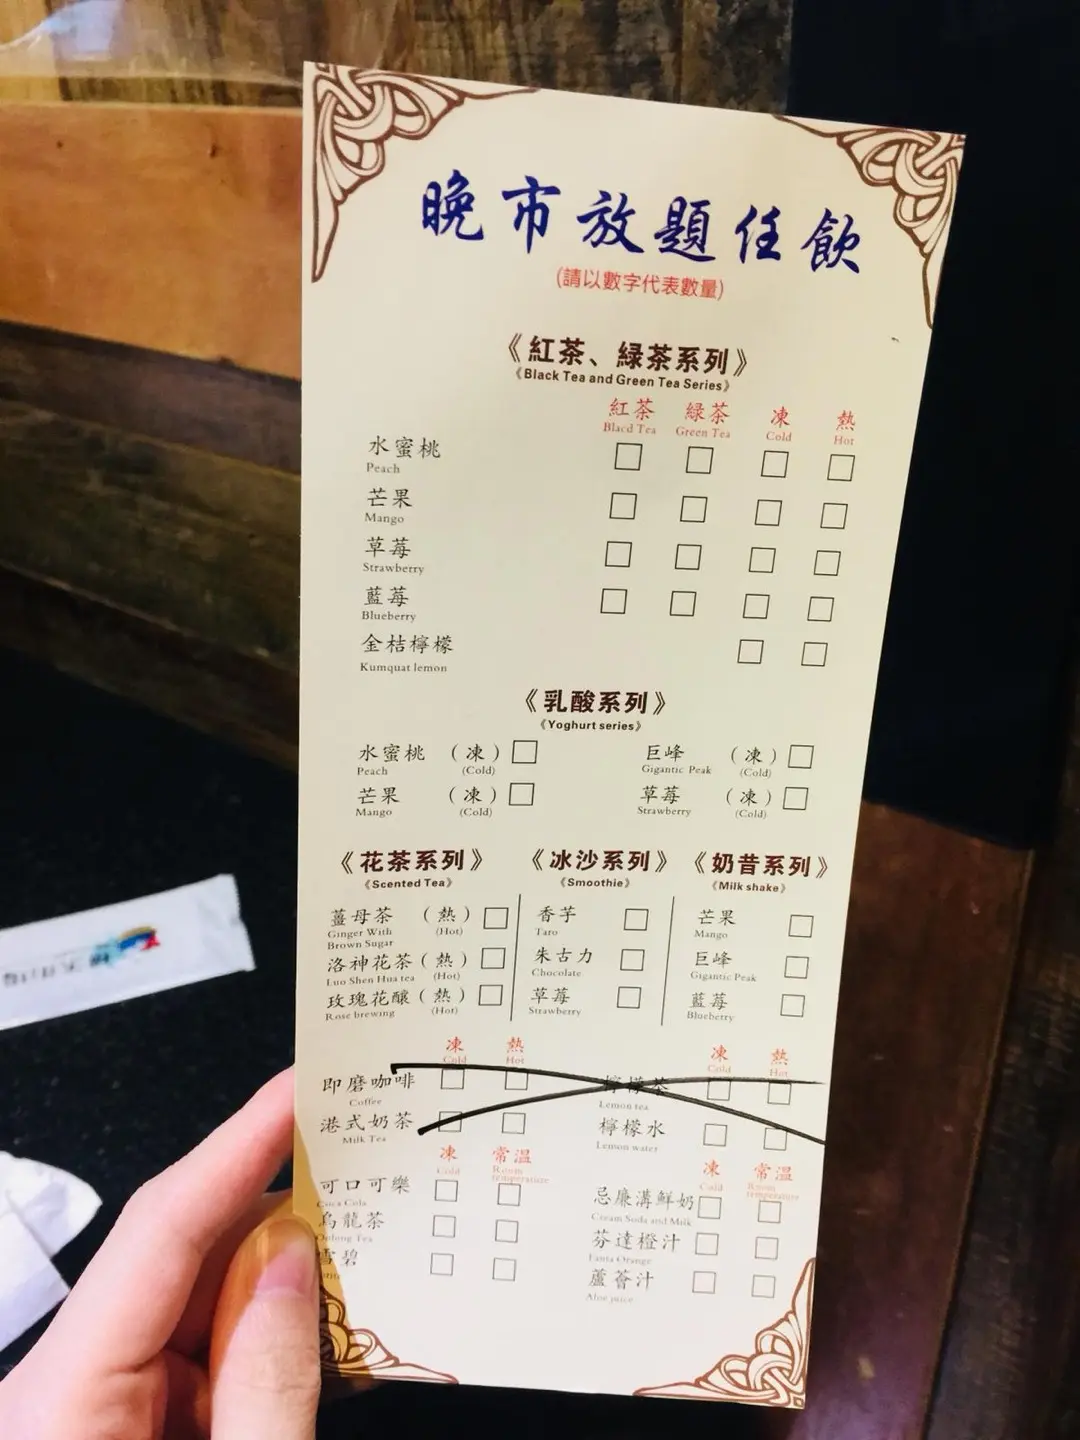 晚市放題任飲
(請以數字代表數量)
《紅茶、綠茶系列》
《Black Tea and Green Tea Series》
紅茶 綠茶 凍 熱
Blacd Tea Green Tea Cold Hot
水蜜桃
Peach
芒果
Mango
草莓
Strawberry
藍莓
Blueberry
金桔檸檬
Kumquat lemon
《乳酸系列》
《Yoghurt series》
水蜜桃 (凍) 巨峰 (凍)
Peach (Cold) Gigantic Peak (Cold)
芒果 (凍) 草莓 (凍)
Mango (Cold) Strawberry (Cold)
《花茶系列》 《冰沙系列》 《奶昔系列》
《Scented Tea》 《Smoothie》 《Milk shake》
薑母茶 (熱) 香芋 芒果
Ginger With (Hot) Taro Mango
Brown Sugar
洛神花茶 (熱) 朱古力 巨峰
Luo Shen Hua tea (Hot) Chocolate Gigantic Peak
玫瑰花釀 (熱) 草莓 藍莓
Rose brewing (Hot) Strawberry Blueberry
凍 熱 凍 熱
Cold Hot Cold Hot
即磨咖啡 檸檬茶
Coffee Lemon tea
港式奶茶 檸檬水
Milk Tea Lemon water
凍 常溫 凍 常溫
Cold Room temperature Cold Room temperature
可口可樂 忌廉溝鮮奶
Coca Cola Cream Soda and Milk
烏龍茶 芬達橙汁
Oolong Tea Fanta Orange
雪碧 蘆薈汁
Aloe juice